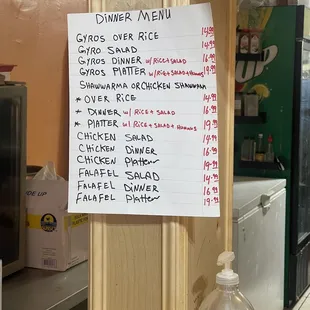 DINNER MENU
GYROS OVER RICE 14.99
GYRO SALAD 14.99
GYROS DINNER w/RICE+SALAD 16.99
GYROS PLATTER w/RICE+SALAD+HUMMUS 19.99
SHAWWARMA OR CHICKEN SHAWARMA
* OVER RICE 14.99
* DINNER w/RICE+SALAD 16.99
* PLATTER w/RICE+SALAD+HUMMUS 19.99
CHICKEN SALAD 14.99
CHICKEN DINNER 16.99
CHICKEN Platter 19.99
FALAFEL SALAD 14.99
FALAFEL DINNER 16.99
FALAFEL Platter 19.99